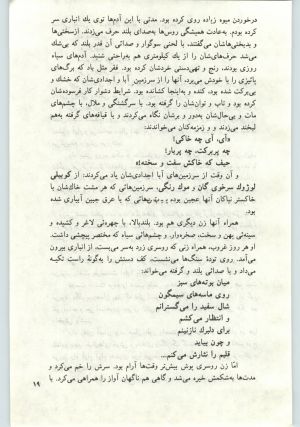 درخوردن میوه زیاده روی کرده بود. مدتی با این آدم‌ها توی یك انباری سر
کرده بودم. به‌عادت همیشگی روس‌ها به‌صدای بلند حرف می‌زدند. ازسختی‌ها
و بدبختی‌هاشان می‌گفتند، با لحنی سوگوار و صدائی آن قدر بلند که بی‌شك
می‌شد حرف‌های‌شان را از یك کیلومتری هم به‌راحتی شنید. آدم‌های سیاه
روزی بودند، رنج و تهی‌دستی خردشان کرده بود. فقر مثل باد که برگ‌های
پائیزی را با خودش می‌برد، آنها را از سرزمین آبا و اجدادی‌شان که خشك و
بی‌برکت شده بود، کنده و به‌اینجا کشانده بود. شرایط دشوار کار فرسوده‌شان
کرده بود و تاب و توان‌شان را گرفته بود. با سرگشتگی و ملال، با چشم‌های
مات و بی‌حال‌شان به‌دور و برشان نگاه می‌کردند و با قیافه‌های گرفته به‌هم
لبخند می‌زدند و زمزمه‌کنان می‌خواندند:
«آی، آی چه خاکی!
چه پربرکت، چه پربار!
حیف که خاکش سفت و سخته!»
و آن وقت از سرزمین‌های آبا اجدادی‌شان یاد می‌کردند: از
سرخوی گان و موك رنگی، سرزمین‌هائی که هر مشت خاك‌شان با
خاکستر نیاکان آنها عجین بوده با عرق جبین آبیاری شده
بود.
همراه آنها زن دیگری هم بود. بلندبالا، با چهره‌ئی لاغر و کشیده و
سینه‌ئی پهن و سخت، صخره‌وار، و چشم‌هائی سیاه که مختصر پیچشی داشت.
او هر روز غروب، همراه زنی که روسری زرد به‌سر می‌بست، از انباری بیرون
می‌آمد. روی تودهٔ سنگ‌ها می‌نشست، کف دستش را به‌گونهٔ راستِ تکیه
می‌داد و با صدائی بلند و گرفته می‌خواند:
میان بوته‌های سبز
روی ماسه‌های سیمگون
شال سفید را می‌گسترانم
و انتظار می‌کشم
برای دلبرك نازنینم
و چون بیاید
قلبم را نثارش می‌کنم...
امّا زن روسری پوش بیش‌تر وقت‌ها آرام بود. سرش را خم می‌کرد و
مدت‌ها به‌شکمش خیره می‌شد و گاهی هم ناگهان آواز را همراهی می‌کرد. با
۱۹